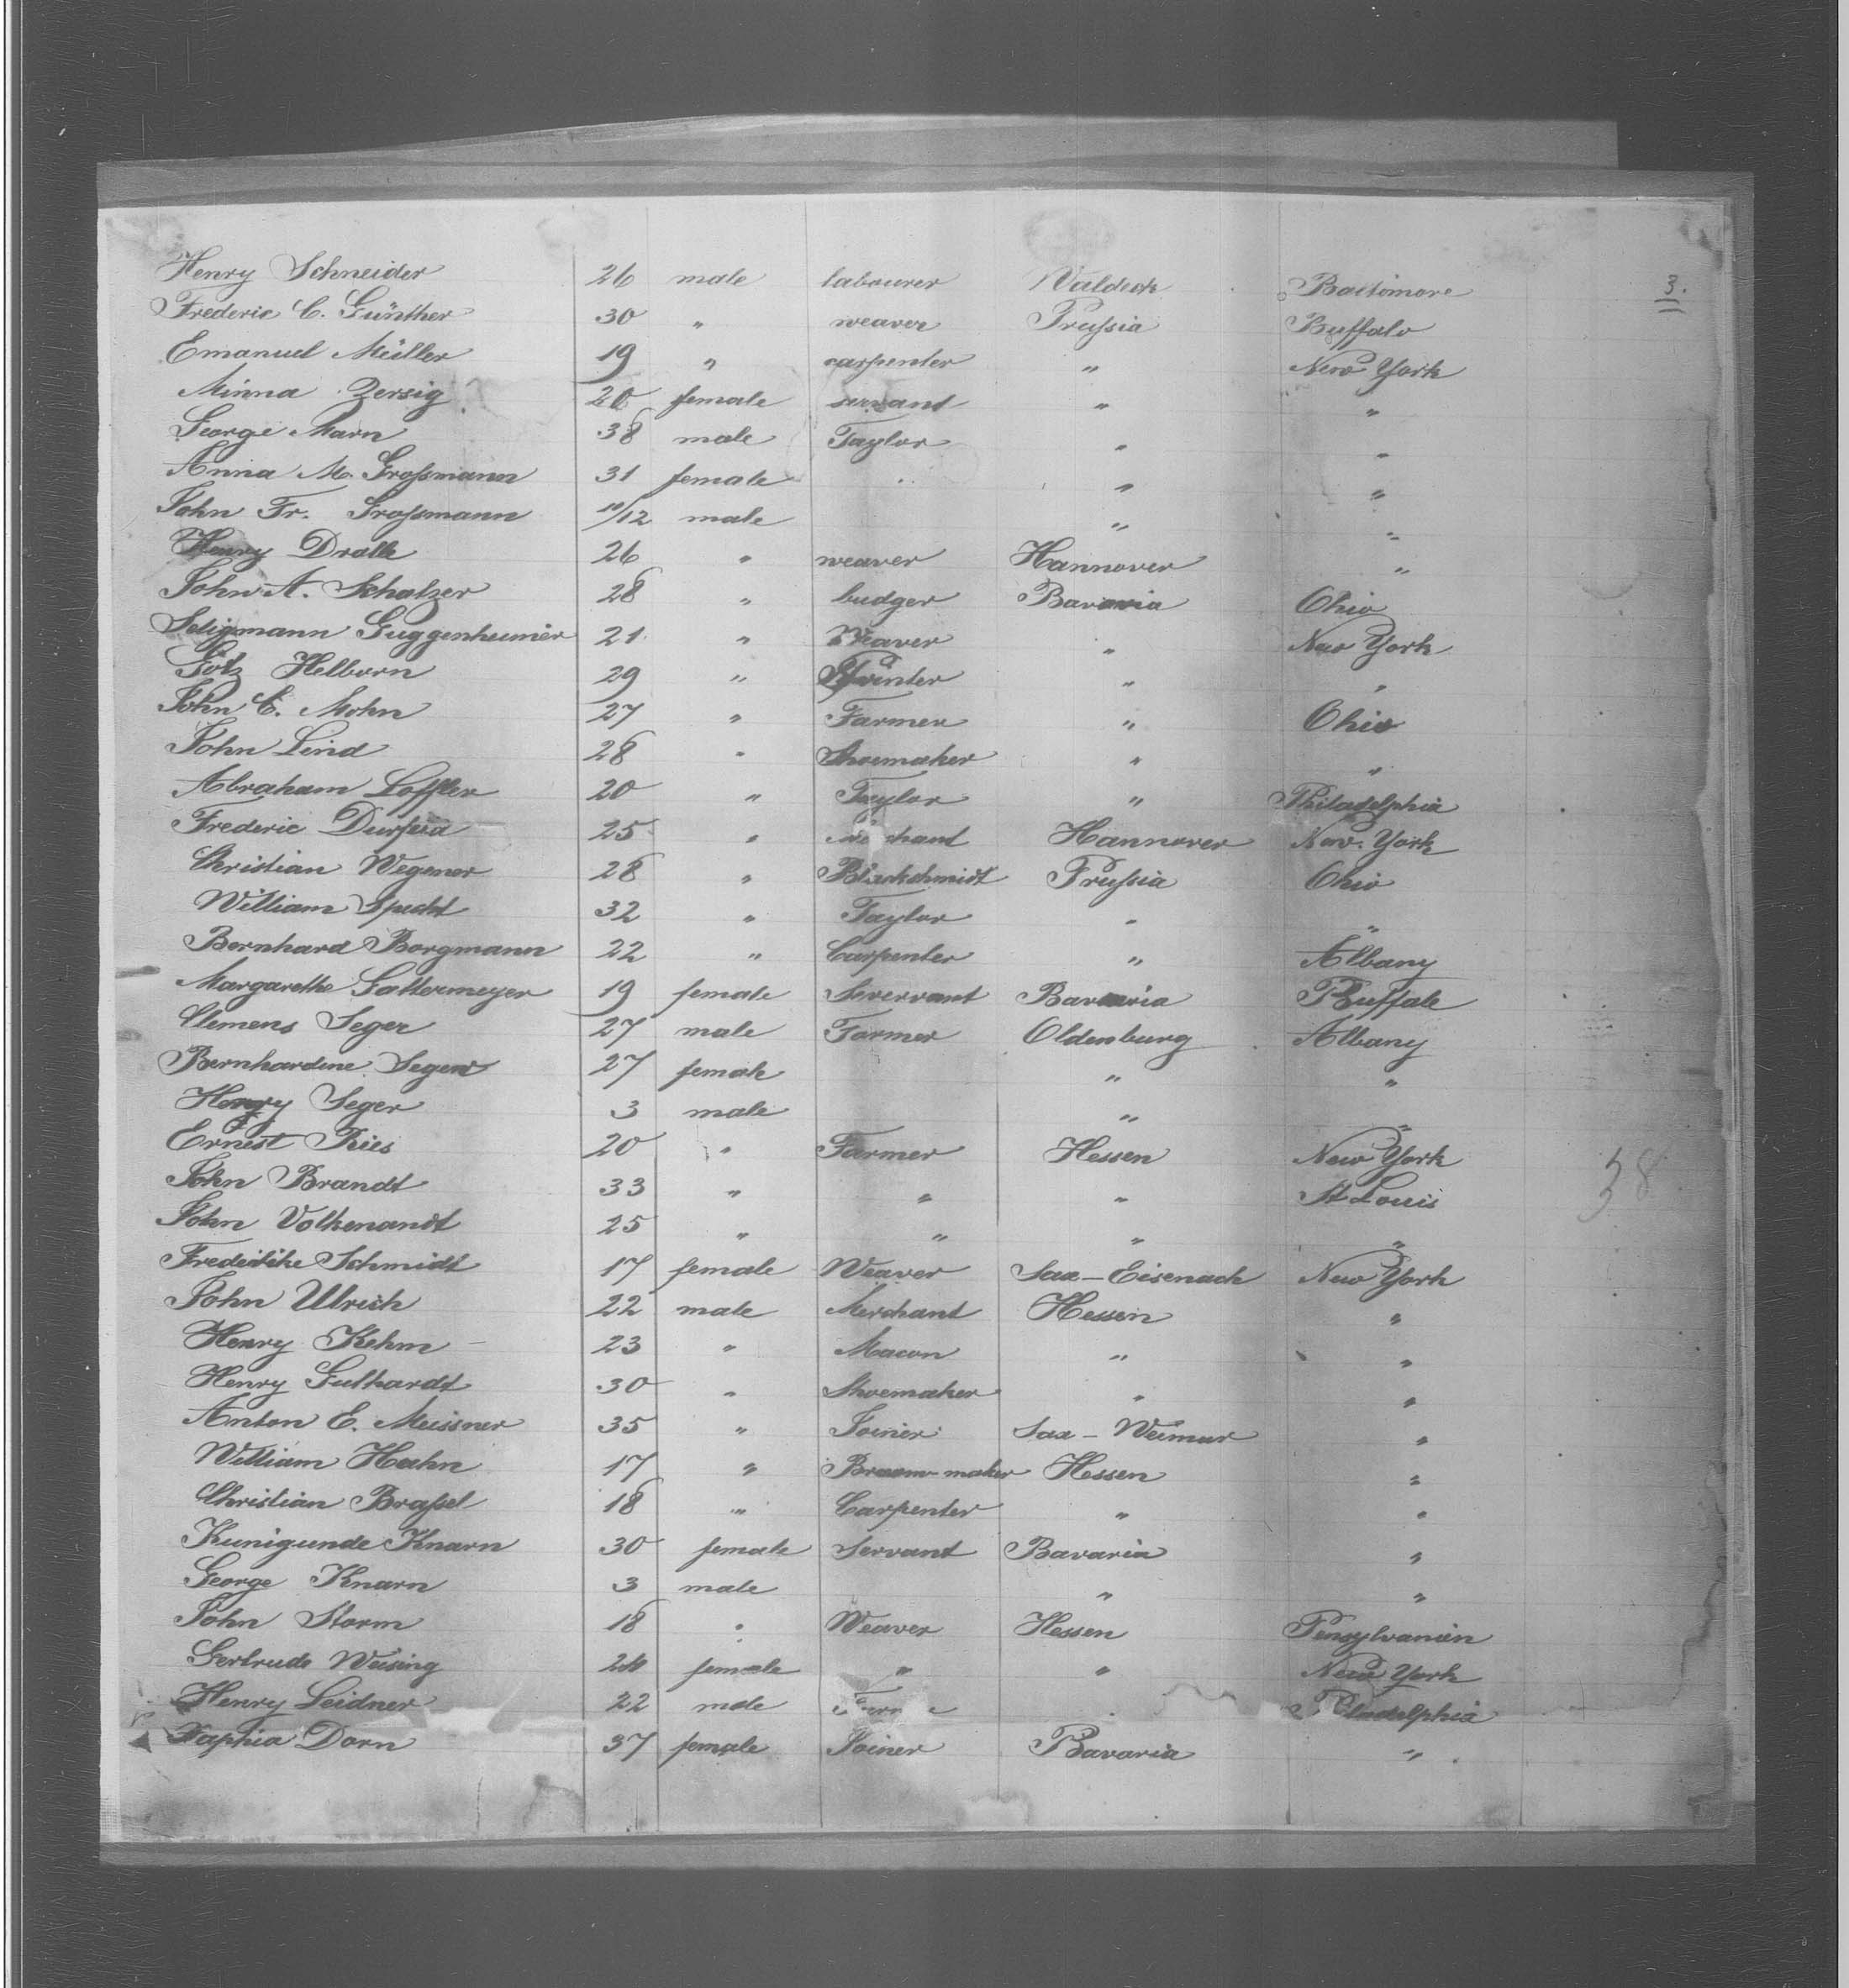 3.
Henry Schneider 26 male labourer Valdeck Baltimore
Frederic C. Günther 30 " weaver Prussia Buffalo
Emanuel Müller 19 " carpenter " New York
Minna Zersig 20 female servant " "
George Marn 38 male Taylor " "
Anna M. Grossmann 31 female " "
John Fr. Grossmann 10/12 male " "
Henry Dralle 26 " weaver Hannover "
John A. Schatzer 28 " budger Bavaria Ohio
Seligmann Guggenheimer 21 " Weaver " New York
Götz Helborn 29 " Printer " "
John C. Mohn 27 " Farmer " Ohio
John Lind 28 " Shoemaker " "
Abraham Loffler 20 " Taylor " Philadelphia
Frederic 25 " Merchant Hannover New York
Christian Wegener 28 " Blackschmidt Prussia Ohio
William Specht 32 " Taylor " "
Bernhard Borgmann 22 " Carpenter " Albany
Margarethe Gattermeyer 19 female Serervant Bavaria Buffale
Clemens Seger 27 male Farmer Oldenburg Albany
Bernhardine Seger 27 female " "
Henry Seger 3 male " "
Ernest Ries 20 " Farmer Hessen New York
John Brandt 33 " " " St Louis
John Volkenandt 25 " " " "
38
Schmidt 17 female Weaver Sax-Eisenach New York
John Ulrich 22 male Merchant Hessen "
Henry Kehm 23 " Macon " "
Henry Guthardt 30 " Shoemaker " "
Anton E. Meissner 35 " Joiner Sax-Weimar "
William Hahn 17 " Braom-maker Hessen "
Christian Brassel 18 " Carpenter " "
Kunigunde Knarn 30 female Servant Bavaria "
George Knarn 3 male " "
John Storm 18 " Weaver Hessen Pensylvanien
Gertrude Weising female " " New York
Henry Leidner 22 male " Philadelphia
Dorn 37 female Joiner Bavaria "